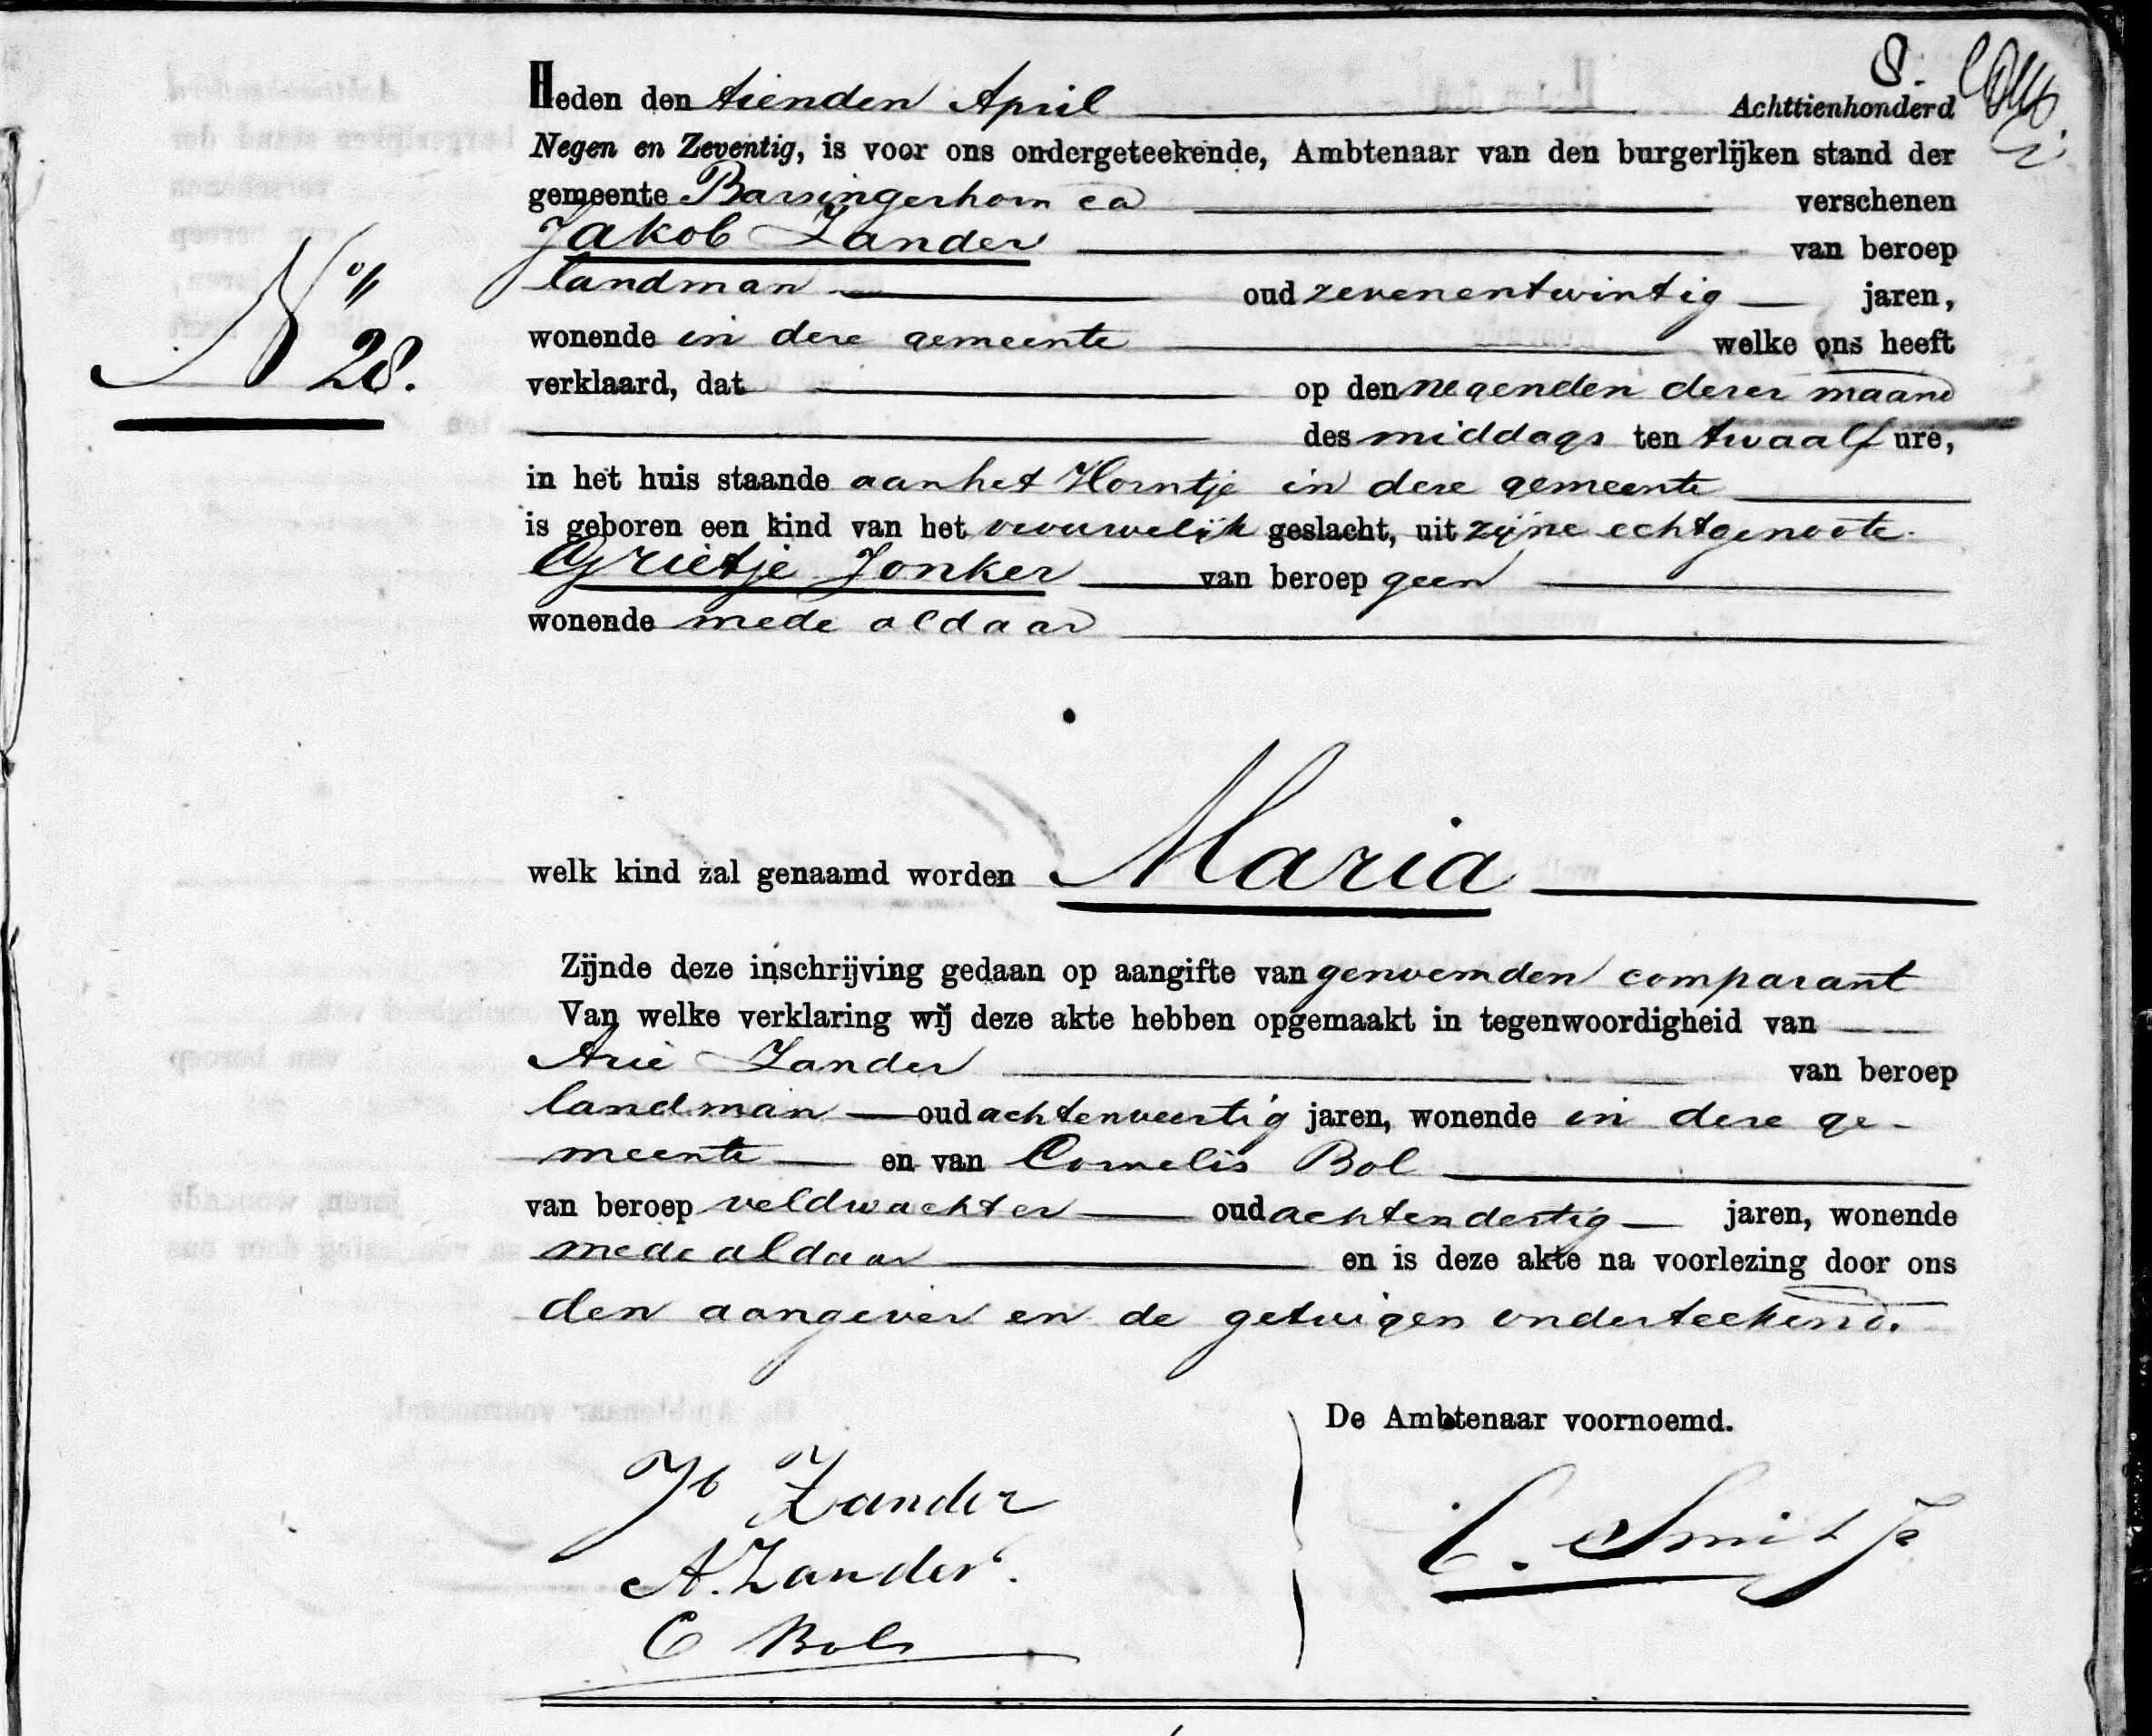 8.
Heden den tienden April Achttienhonderd
Negen en Zeventig, is voor ons ondergeteekende, Ambtenaar van den burgerlijken stand der
gemeente Barsingerhorn ca verschenen
Jakob Zander van beroep
landman oud zevenentwintig jaren,
wonende in deze gemeente welke ons heeft
No 28.
verklaard, dat op den negenden dezer maand
des middags ten twaalf ure,
in het huis staande aan het Horntje in deze gemeente
is geboren een kind van het vrouwelijk geslacht, uit zijne echtgenoote
Grietje Jonker van beroep geen
wonende mede aldaar
welk kind zal genaamd worden Maria
Zijnde deze inschrijving gedaan op aangifte van genoemden comparant
Van welke verklaring wij deze akte hebben opgemaakt in tegenwoordigheid van
Arie Zander van beroep
landman oud achtenveertig jaren, wonende in deze ge-
meente en van Cornelis Bol
van beroep veldwachter oud achtendertig jaren, wonende
mede aldaar en is deze akte na voorlezing door ons
den aangever en de getuigen onderteekend.
De Ambtenaar voornoemd.
Jb Zander
A. Zander.
C. Smit Jz
C Bol